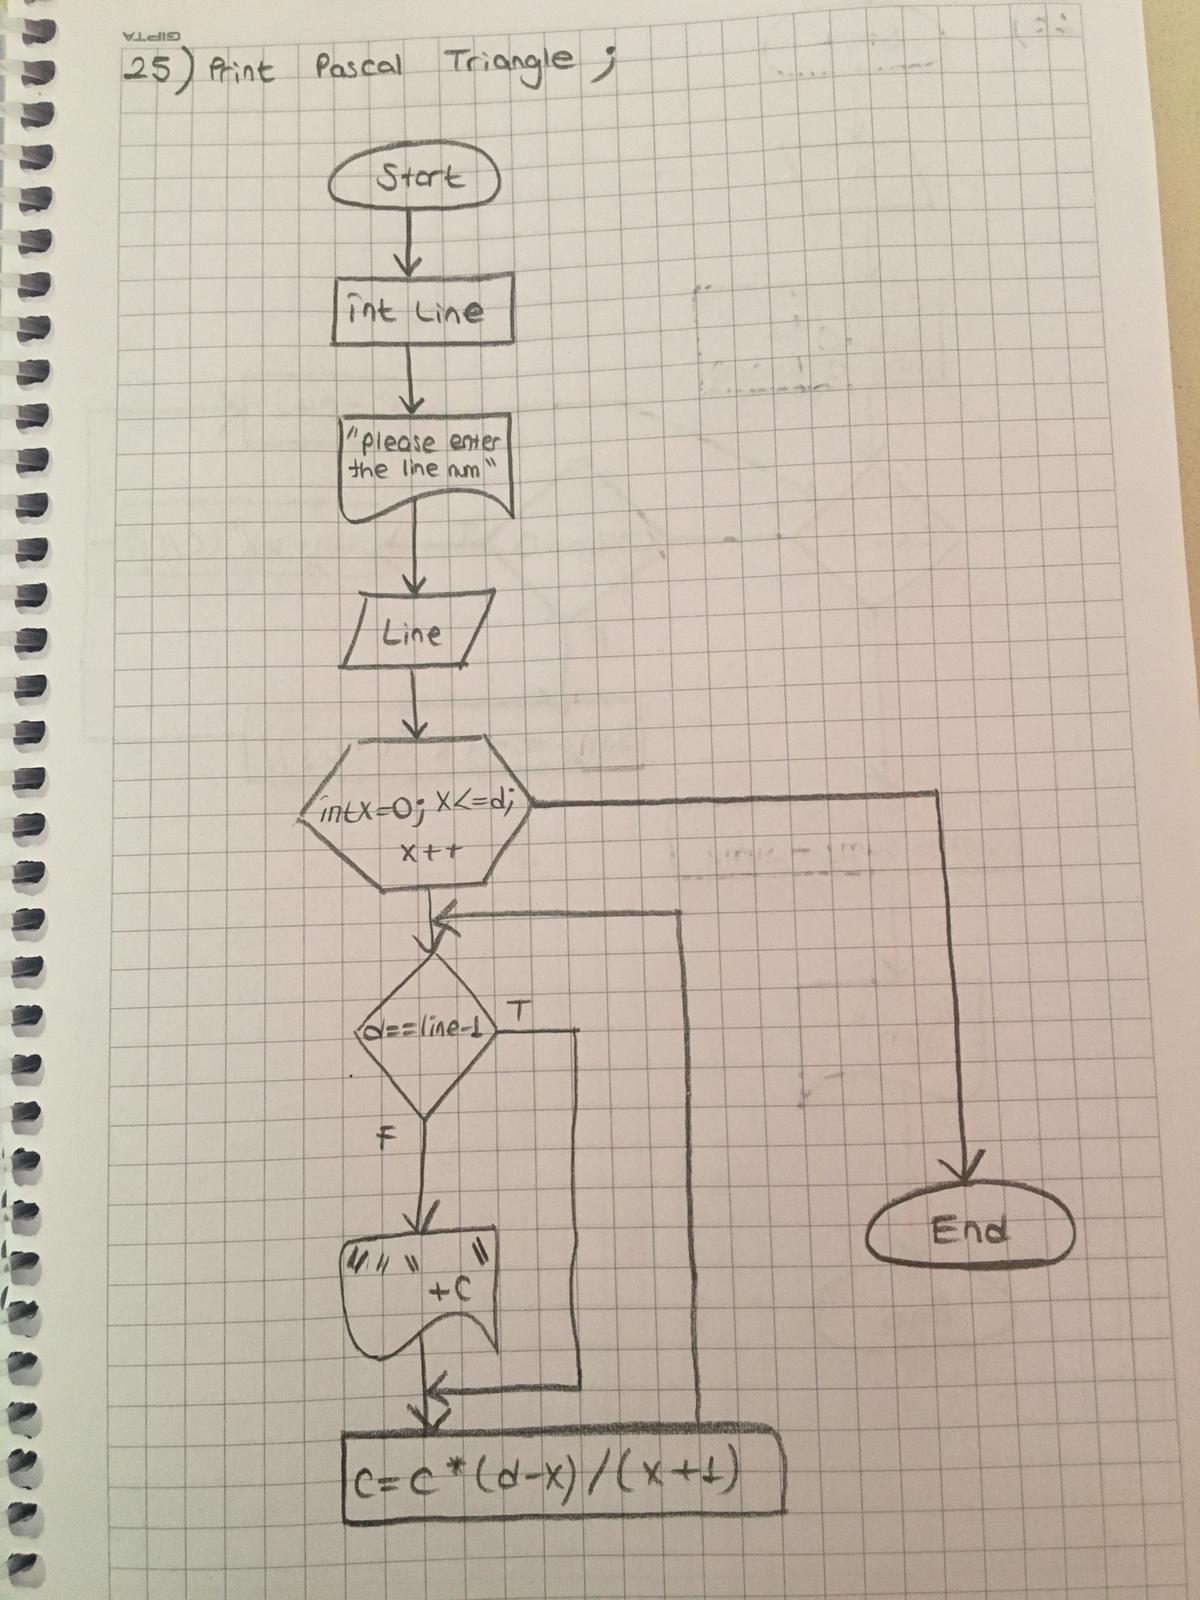 GIPTA
25) Print Pascal Triangle ;
Start
int Line
"please enter
the line num"
Line
int x=0; x<=d;
x++
d==line-1
T
F
" " " "
+c
End
c=c*(d-x)/(x+1)